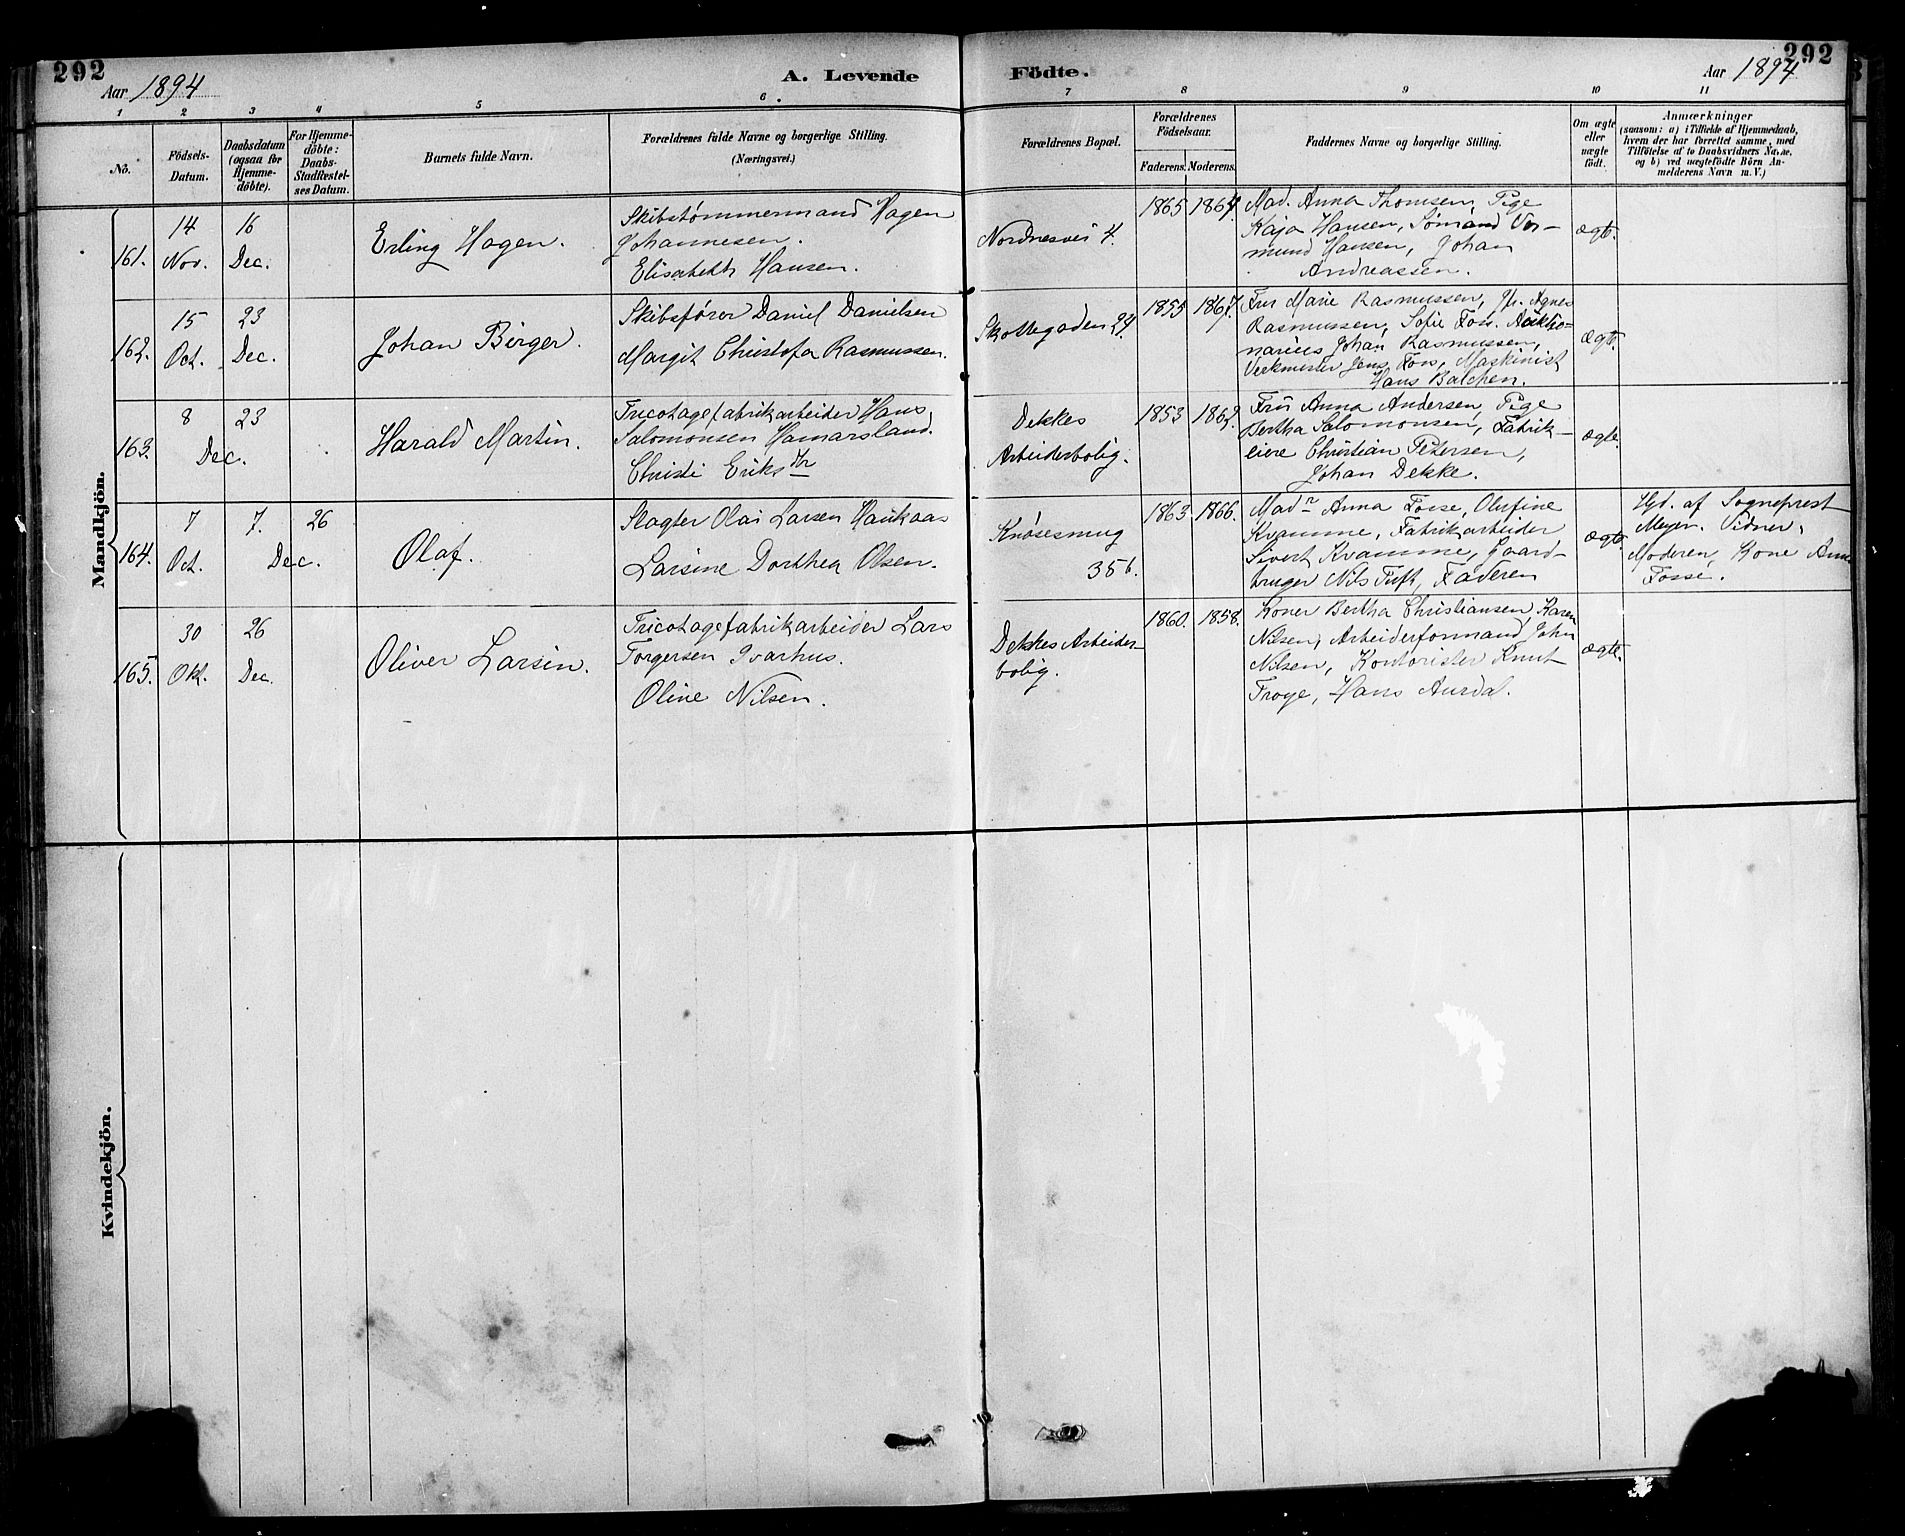 292
Aar 1894
A. Levende
Födte.
Aar 1894
292
1 2 3 4 5 6 7 8 9 10 11
No.
Födsels-
Datum.
Daabsdatum
(ogsaa for
Hjemme-
döbte).
For Hjemme-
döbte:
Daabs-
Stadfæstel-
ses Datum.
Barnets fulde Navn.
Forældrenes fulde Navne og borgerlige Stilling.
(Næringsvei.)
Forældrenes Bopæl.
Forældrenes
Födselsaar.
Faderens. Moderens.
Faddernes Navne og borgerlige Stilling.
Om ægte
eller
uægte
födt.
Anmærkninger
(saasom: a) i Tilfælde af Hjemmedaab,
hvem der har forrettet samme, med
Tilföielse af to Daabsvidners Navne,
og b) ved uægtefödte Börn An-
melderens Navn m. V.)
Mandkjön.
161.
14
Nov.
16
Dec.
Erling Hagen.
Skibstømmermand Hagen
Johannesen.
Elisabeth Hansen.
Nordnesvei 4.
1865
1864.
Mad. Anna Thomsen, Pige
Kaja Hansen, Sømand Ver-
mund Hansen, Johan
Andreassen.
ægte.
162.
15
Oct.
23
Dec.
Johan Birger.
Skibsfører Daniel Danielsen
Margit Christofa Rasmussen.
Skottegaden 24.
1855
1867.
Fru Marie Rasmussen, Jfr. Agnes
Rasmussen, Sofie Foss. Auktio-
narius Johan Rasmussen,
Verkmester Jens Foss, Maskinist
Hans Balchen.
ægte.
163.
8
23
Dec.
Harald Martin.
Tricotagefabrikarbeider Hans
Salomonsen Hamarsland.
Christi Eriksdtr
Dekkes
Arbeiderbolig.
1853
1862.
Fru Anna Andersen, Pige
Bertha Salomonsen, Fabrik-
eiere Christian Petersen,
Johan Dekke.
ægte.
164.
7
Oct.
7.
26
Dec.
Olaf.
Slagter Olai Larsen Haukaas
Larsine Dorthea Olsen.
Knøsesmug
35 b.
1863
1866.
Madn Anna Fosse, Olufine
Kvamme, Fabrikarbeider
Sivert Kvamme, Gaard-
bruger Nils Tuft, Faderen
ægte
Hjd. af Sogneprest
Meyer. Vidner,
Moderen, Kone Anna
Fosse.
165.
30
Okt.
26
Dec.
Oliver Larsin.
Tricotagefabrikarbeider Lars
Torgersen Ivarhus.
Oline Nilsen.
Dekkes Arbeider-
bolig.
1860.
1858.
Koner Bertha Christiansen, Karen
Nilsen, Arbeiderformand John
Nilsen, Kontorister Knut
Troye, Hans Aurdal.
ægte.
Kvindekjön.